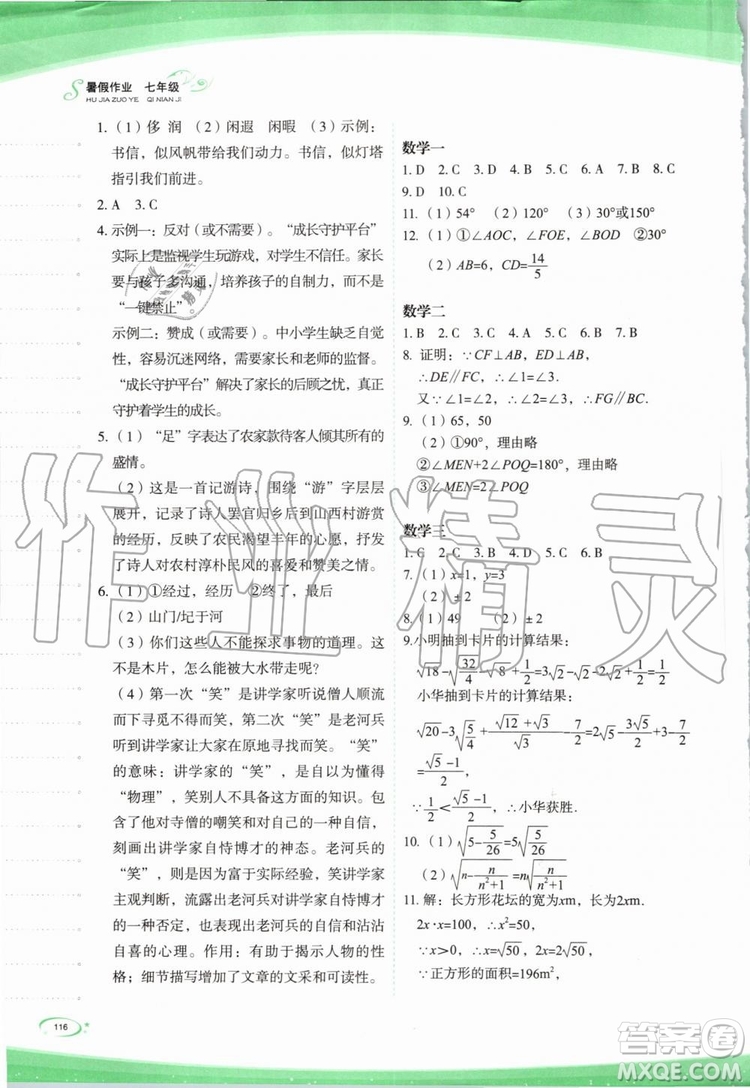 暑假作业 七年级
HU JIA ZUO YE QI NIAN JI
1. （1）侈 润 （2）闲遐 闲暇 （3）示例：
书信，似风帆带给我们动力。书信，似灯塔
指引我们前进。
2. A 3. C
4. 示例一：反对（或不需要）。“成长守护平台”
实际上是监视学生玩游戏，对学生不信任。家长
要与孩子多沟通，培养孩子的自制力，而不是
“一键禁止”
示例二：赞成（或需要）。中小学生缺乏自觉
性，容易沉迷网络，需要家长和老师的监督。
“成长守护平台”解决了家长的后顾之忧，真正
守护着学生的成长。
5. （1）“足”字表达了农家款待客人倾其所有的
盛情。
（2）这是一首记游诗，围绕“游”字层层
展开，记录了诗人罢官归乡后到山西村游赏
的经历，反映了农民渴望丰年的心愿，抒发
了诗人对农村淳朴民风的喜爱和赞美之情。
6. （1）①经过，经历 ②终了，最后
（2）山门/圮于河
（3）你们这些人不能探求事物的道理。这
不是木片，怎么能被大水带走呢？
（4）第一次“笑”是讲学家听说僧人顺流
而下寻觅不得而笑。第二次“笑”是老河兵
听到讲学家让大家在原地寻找而笑。“笑”
的意味：讲学家的“笑”，是自恃博才，通晓
“物理”，笑别人不具备这方面的知识。仅仅
包含了他对寺僧的嘲笑和对自己的夸耀，
刻画出讲学家自恃博才的神态。老河兵的
“笑”，则是富于实际经验，笑讲学家的
主观判断，流露出老河兵对讲学家自恃博才
的一种否定，表现出老河兵的自信和沾沾
自喜的心理。作用：有助于揭示人物的性
格；细节描写增加了文章的文采和可读性。
116
数学一
1. D 2. C 3. D 4. B 5. C 6. A 7. B 8. C
9. D 10. C
11. （1）54° （2）120° （3）30°或150°
12. （1）①∠AOC，∠FOE，∠BOD ②30°
（2）AB=6，CD=14/5
数学二
1. B 2. C 3. C 4. D 5. A 6. B 7. C
8. 证明：∵CF⊥AB，ED⊥AB，
∴DE∥FC，∴∠1=∠3.
又∵∠1=∠2，∴∠2=∠3，∴FG∥BC.
9. （1）65，50
（2）①90°，理由略
②∠MEN+2∠POQ=180°，理由略
③∠MEN=2∠POQ
数学三
1. C 2. C 3. C 4. D 5. C 6. B
7. （1）x=1，y=3
（2）±2
8. （1）49 （2）±2
9.小明抽到卡片的计算结果：
√18-√(32/4)-√8+1/2=3√2-2√2-2√2+1/2=1/2-√2
小华抽到卡片的计算结果：
√20-3√(5/4)+(√12+√3)/√3-7/2=2√5-(3/2)√5+3-7/2
=(√5-1)/2，
∵1/2<(√5-1)/2，∴小华获胜.
10. （1）√(5-5/26)=5√(5/26)
（2）√(n-n/(n²+1))=n√(n/(n²+1))
11. 解：长方形花坛的宽为xm，长为2xm.
2x·x=100，∴x²=50，
∵x＞0，∴x=√50，2x=2√50，
∵正方形的面积=196m²，
作业精灵
答案圈
MXQE.COM